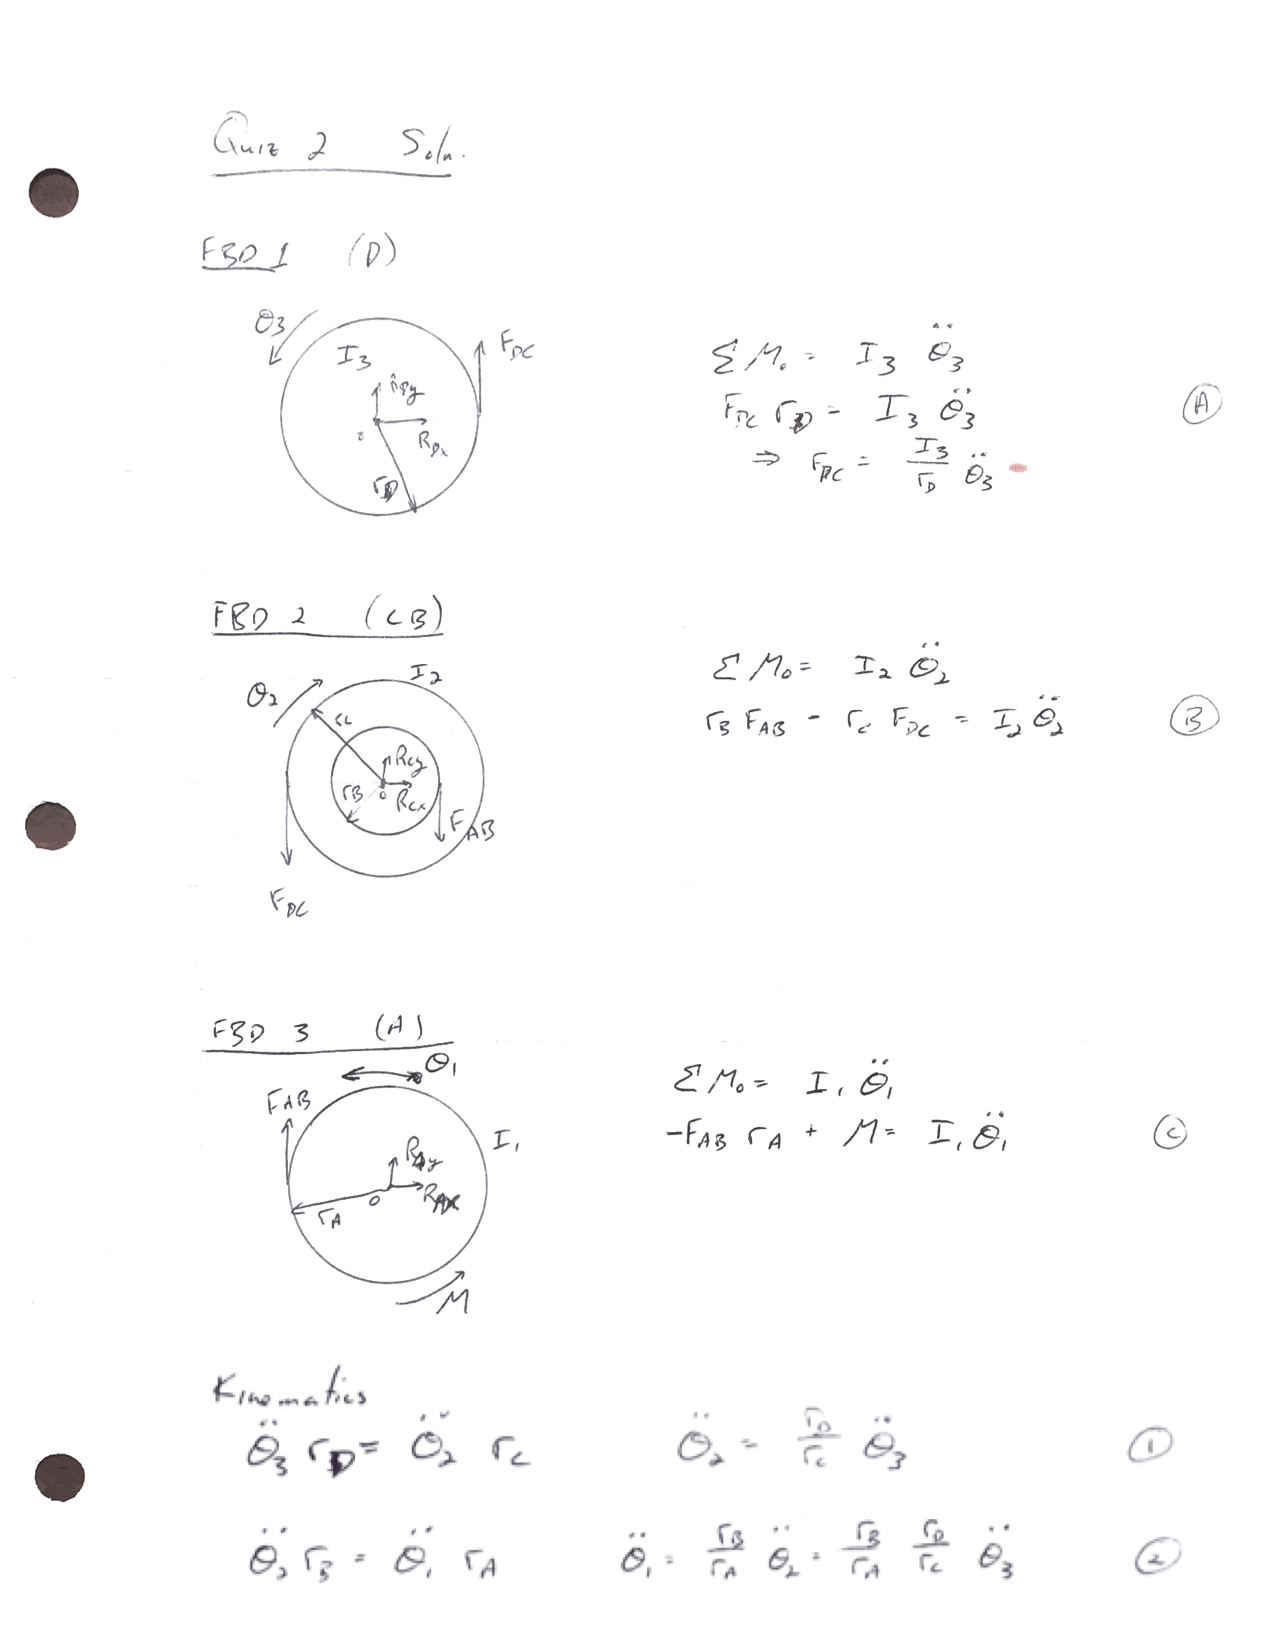 Quiz 2 Soln.
FBD 1 (D)
θ3
I3
FDC
RDy
RDx
o
rD
ΣMo = I3 θ̈3
FDC rD = I3 θ̈3 (A)
⇒ FDC = I3/rD θ̈3
FBD 2 (CB)
θ2
I2
rC
RCy
rB
o
RCx
FAB
FDC
ΣMo = I2 θ̈2
rB FAB - rC FDC = I2 θ̈2 (B)
FBD 3 (A)
θ1
FAB
I1
RAy
RAx
o
rA
M
ΣMo = I1 θ̈1
-FAB rA + M = I1 θ̈1 (C)
Kinematics
θ̈3 rD = θ̈2 rC θ̈2 = rD/rC θ̈3 (1)
θ̈2 rB = θ̈1 rA θ̈1 = rB/rA θ̈2 = rB/rA rD/rC θ̈3 (2)